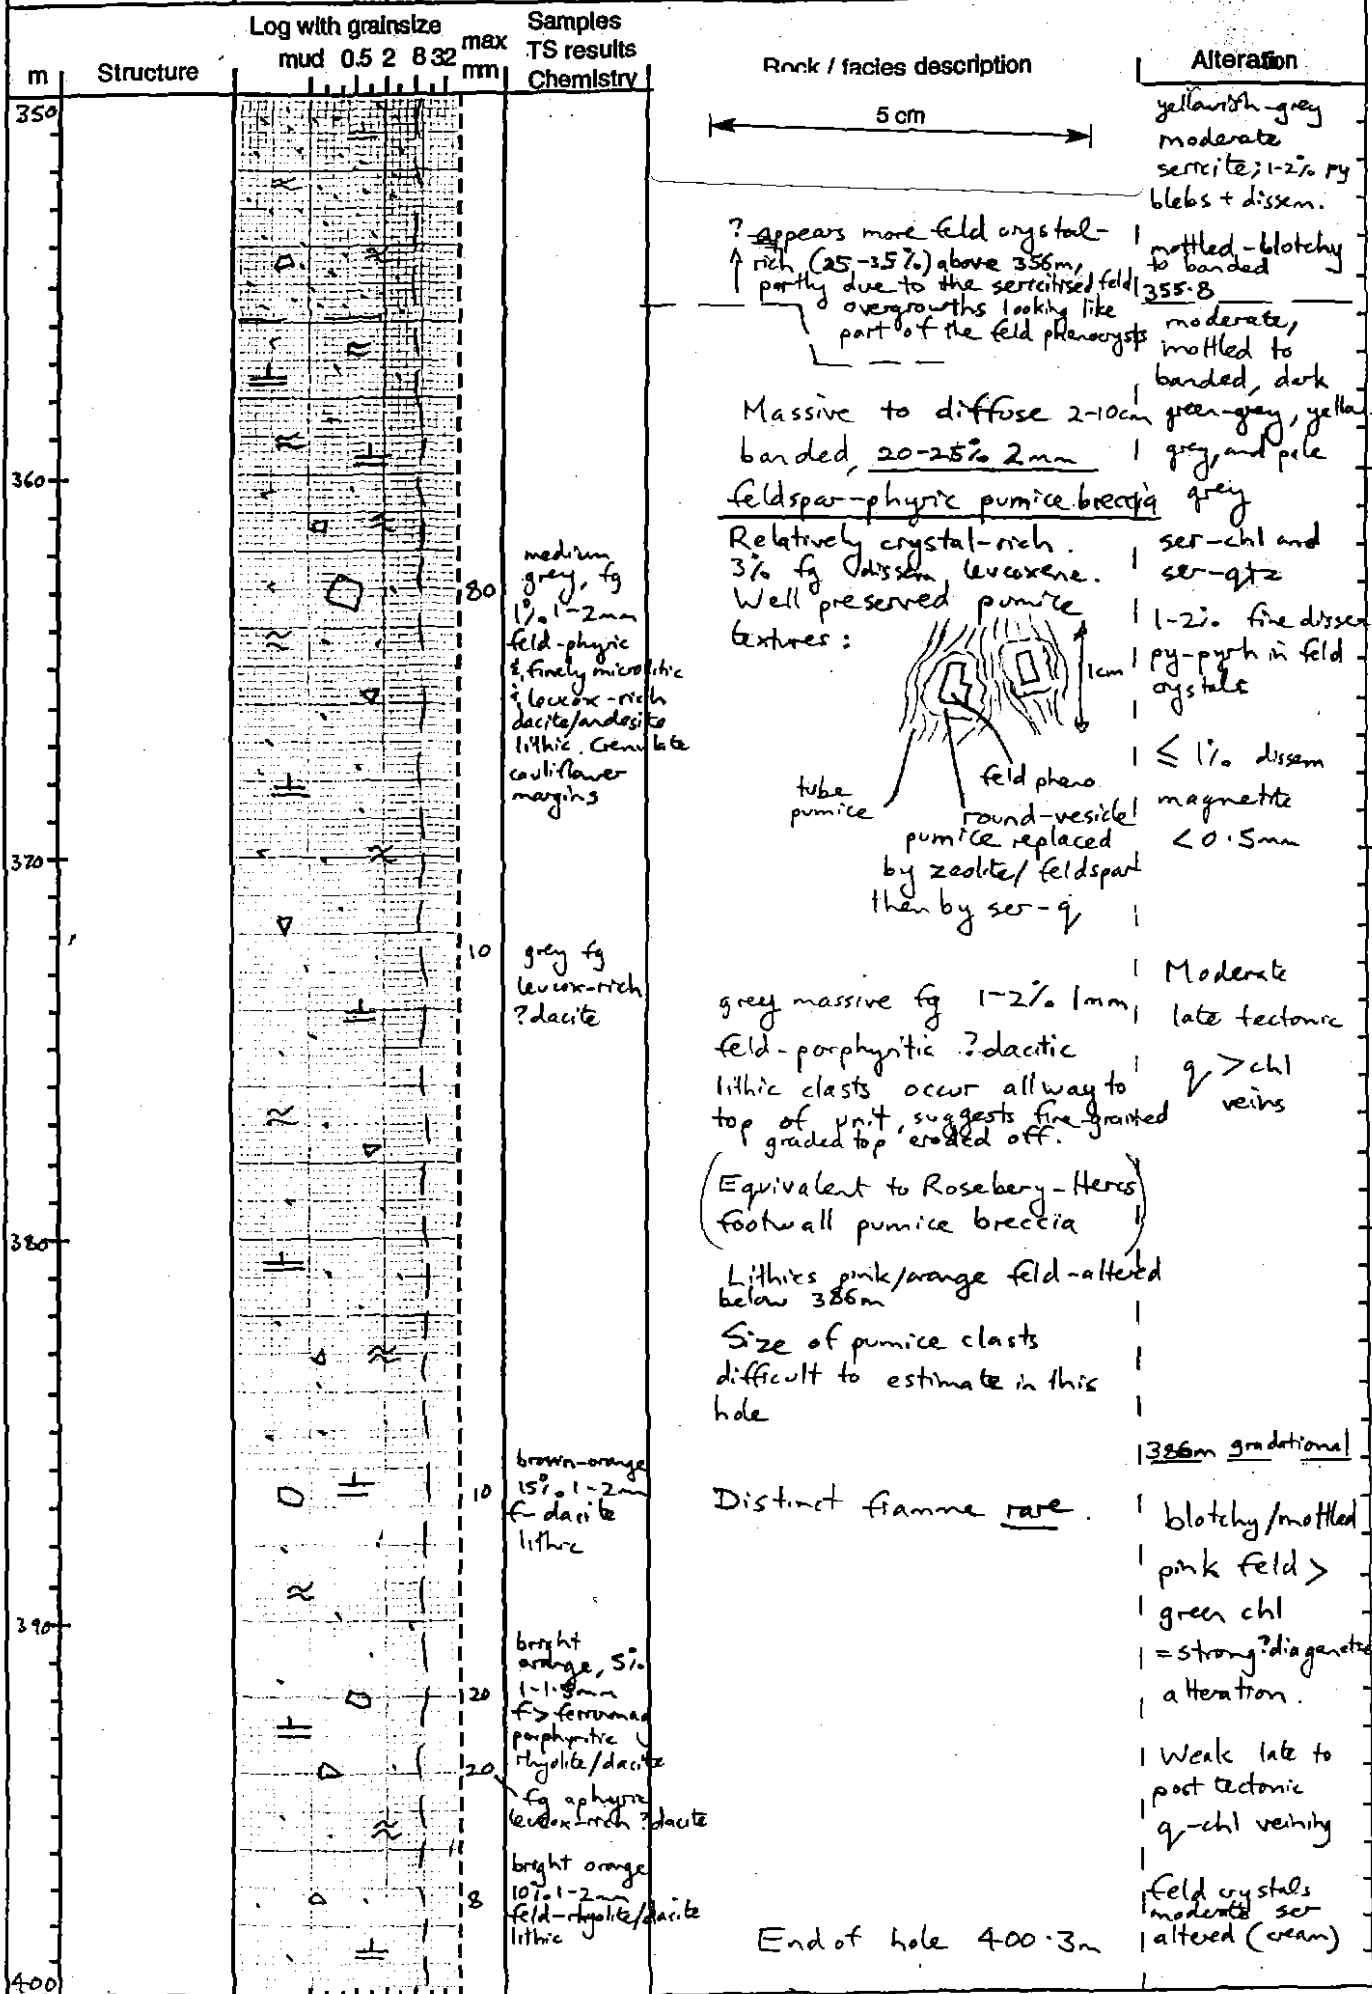 Log with grainsize
mud 0.5 2 8 32
max
mm
Samples
TS results
Chemistry
m
Structure
Rock / facies description
Alteration
5 cm
350
360
370
380
390
400
80
10
10
20
20
8
medium
grey, fg
1% 1-2mm
feld-phyric
& finely microlitic
& leucox-rich
dacite/andesite
lithic. Crenulate
cauliflower
margins
grey fg
leucox-rich
?dacite
brown-orange
15% 1-2mm
f-dacite
lithic
bright
orange, 5%
1-1.5mm
f>ferromag
porphyritic
rhyolite/dacite
fg aphyric
leucox-rich ?dacite
bright orange
10% 1-2mm
feld-rhyolite/dacite
lithic
? appears more feld crystal-
rich (25-35%) above 356m,
partly due to the sericitised feld
overgrowths looking like
part of the feld phenocrysts
Massive to diffuse 2-10cm
banded, 20-25% 2mm
feldspar-phyric pumice breccia
Relatively crystal-rich.
3% fg dissem, leucoxene.
Well preserved pumice
textures:
1cm
tube
pumice
feld pheno
round-vesicle
pumice replaced
by zeolite/feldspar
then by ser-q
grey massive fg 1-2% 1mm
feld-porphyritic ?dacitic
lithic clasts occur all way to
top of unit, suggests fine-grained
graded top eroded off.
(Equivalent to Rosebery-Hercs
footwall pumice breccia)
Lithics pink/orange feld-altered
below 386m
Size of pumice clasts
difficult to estimate in this
hole
Distinct fiamme rare.
End of hole 400.3m
yellowish-grey
moderate
sericite; 1-2% py
blebs + dissem.
mottled-blotchy
to banded
355.8
moderate,
mottled to
banded, dark
green-grey, yellow
grey, and pale
grey
ser-chl and
ser-qtz
1-2% fine dissem
py-pyrh in feld
crystals
≤ 1% dissem
magnetite
<0.5mm
Moderate
late tectonic
q >chl
veins
386m gradational
blotchy/mottled
pink feld >
green chl
= strong ?diagenetic
alteration.
Weak late to
post tectonic
q-chl veining
feld crystals
moderate ser
altered (cream)